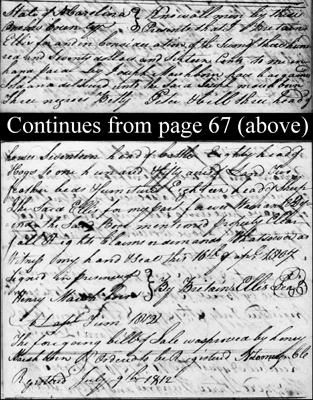 State of N Carolina } Know all men by these
Brooks County } Presents that I Britain
Ellis for and in Consideration of the Sum of three hun
red and Seventy dollars and Sixteen Cents to me in
hand paid by Joseph Marshborn hath bargained
Sold and delivered unto the Said Joseph Marshborn
three negroes Betty Peter Hill three head of
Continues from page 67 (above)
horses Seventeen head of Cattle Eighty head of
Hogs to one hundred and fifty acres of Land Two
feather beds furniture Eighteen head of Sheep
The Said Ellis for my part
the Said Bove mentioned property all
just Rights Claims or demands Whatsoever as
Witness my hand & Seal this 16th of apl 1807
Signed in presence of }
Henry Marshborn } By Britain Ellis Seal
The fore going bill of Sale was proved by henry
Marshborn & Ordered to be Registered
Registered July 9th 1812